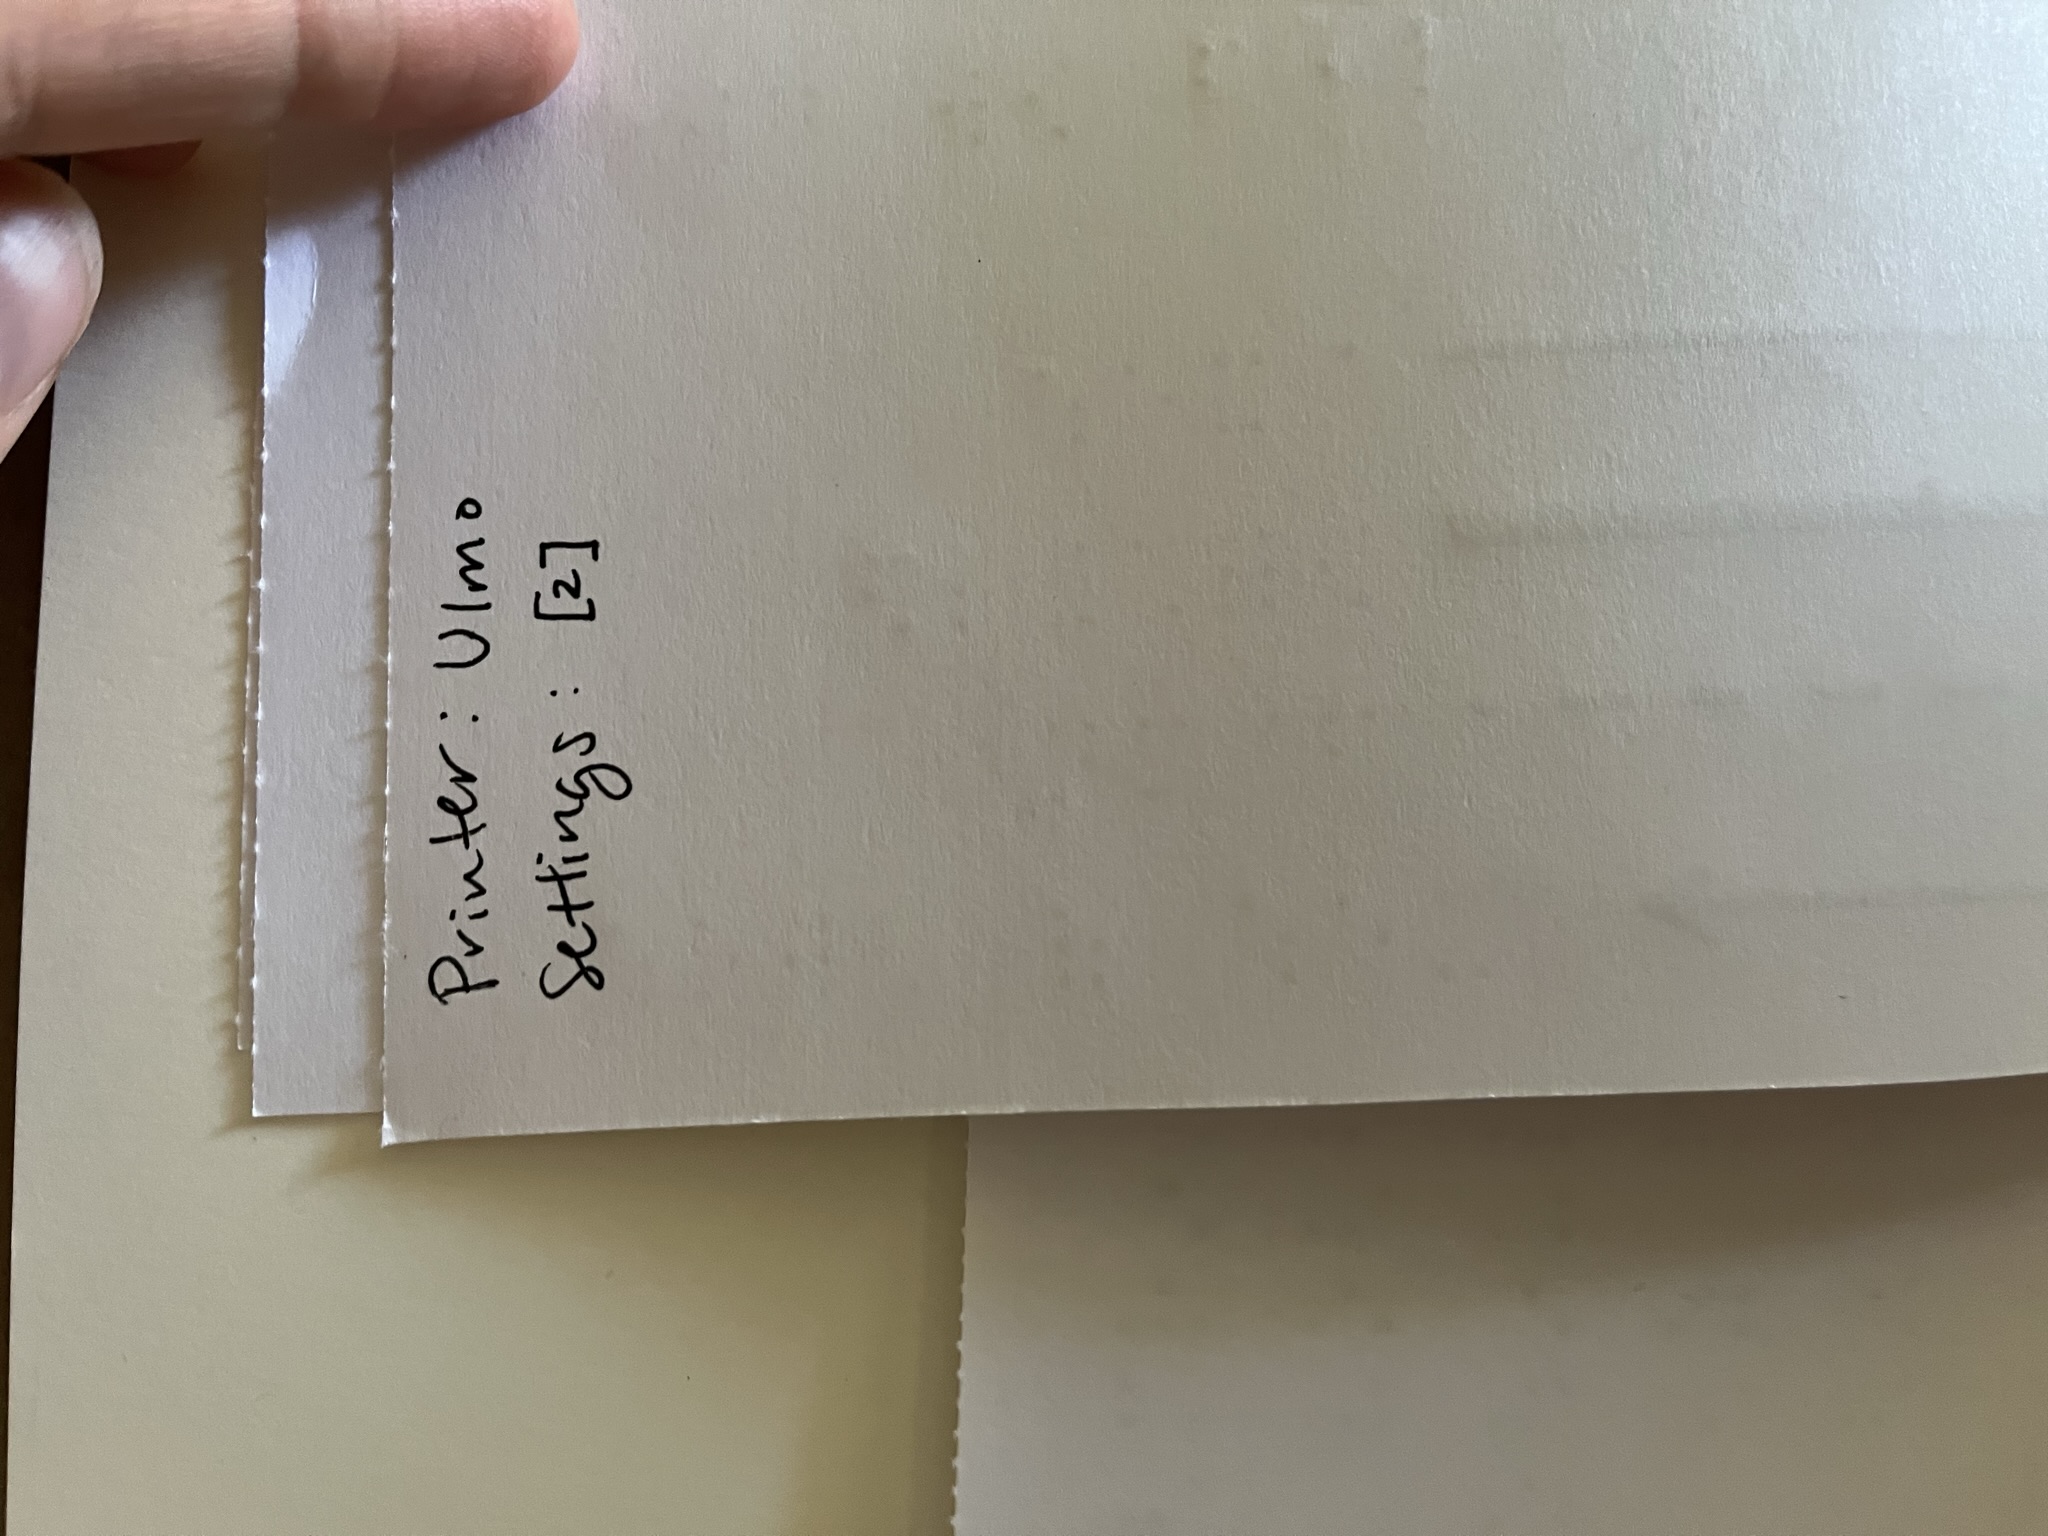 Printer: Ulmo
Settings: [2]